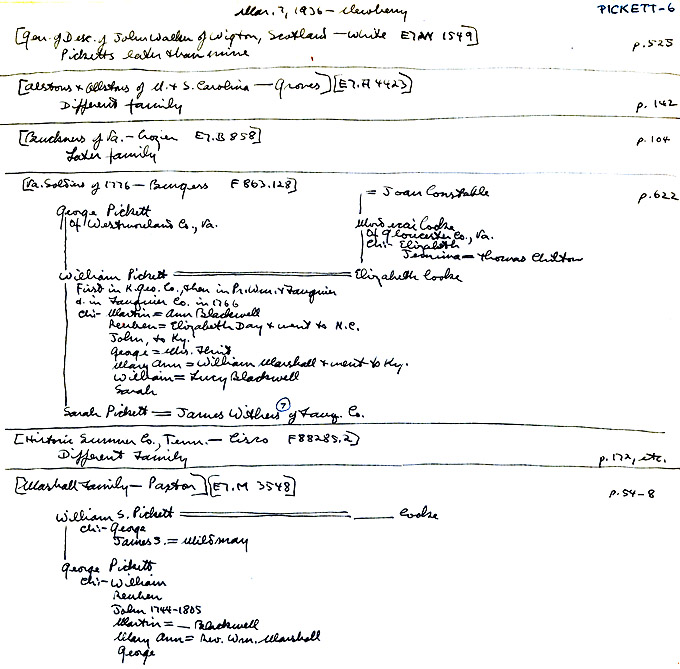 Mar. 7, 1936 - Newberry
PICKETT-6
[Gen. of Desc. of John Walker of Wigton, Scotland - White E7.W 1549]
p.525
Picketts later than mine
[Alstons & Allstons of N. & S. Carolina - Groves] [E7.A 4423]
Different family
p. 142
[Buckners of Va. - Crozier E7.B 858]
p. 104
Later family
[Va. Soldiers of 1776 - Burgess F 863.128]
= Joan Constable
p.622
George Pickett
Of Westmoreland Co., Va.
Mordecai Cooke
Of Gloucester Co., Va.
Chi- Elizabeth
Jemima = Thomas Chilton
William Pickett = Elizabeth Cooke
First in K. Geo. Co., then in Pr. Wm. & Fauquier
d. in Fauquier Co. in 1766
Chi- Martin = Ann Blackwell
Reuben = Elizabeth Day & went to N.C.
John, to Ky.
George = Mrs. Flint
Mary Ann = William Marshall & went to Ky.
William = Lucy Blackwell
Sarah
Sarah Pickett = James Withers 7 of Fauq. Co.
[Historic Sumner Co., Tenn. - Cisco F88285.2]
Different Family
p.172, etc.
[Marshall Family - Paxton] [E7.M 3548]
p.54-8
William S. Pickett = ____ Cooke
Chi- George
James S. = Mildmay
George Pickett
Chi- William
Reuben
John 1744-1805
Martin = _ Blackwell
Mary Ann = Rev. Wm. Marshall
George